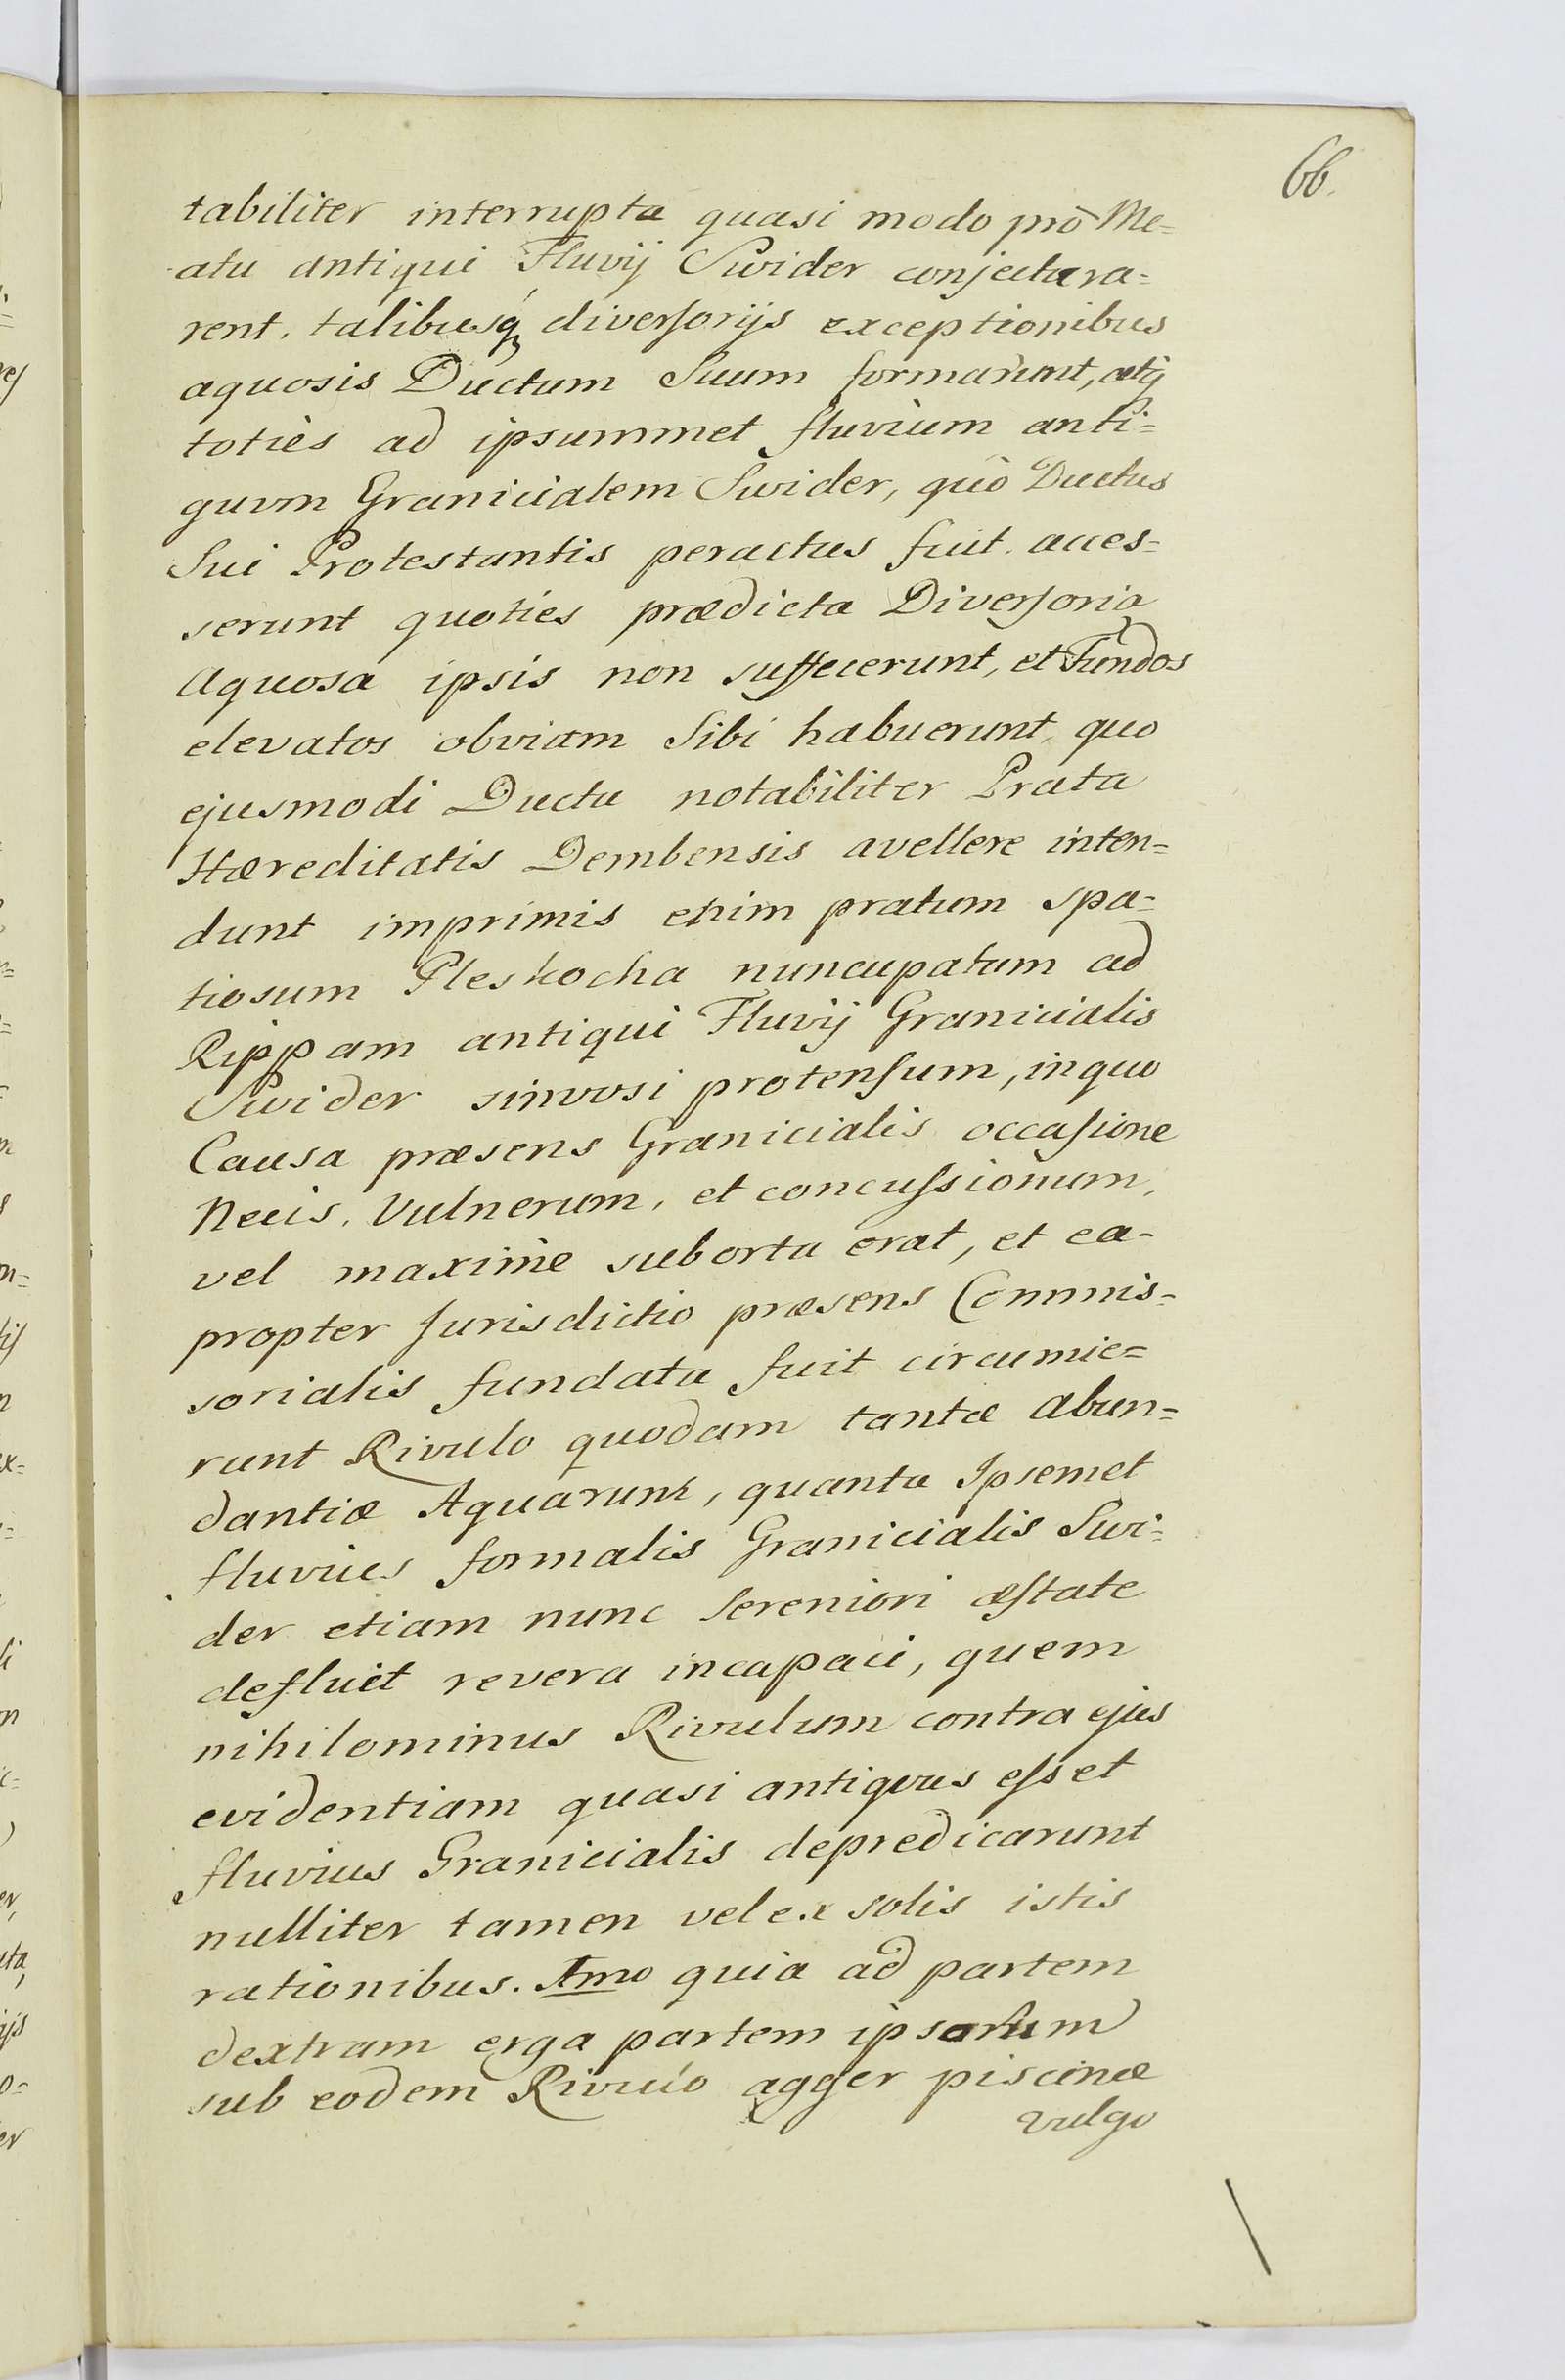 66.
tabiliter interrupta quasi modo prò Me=
atu antiqui Fluvij Swider conjectura=
rent. talibusq́ diversorijs exceptionibus
aquosis Ductum Suum formarunt, atq
toties ad ipsummet fluvium anti=
quum Granicialem Swider, quô Ductus
Sui Protestantis peractus fuit. acces=
serunt quoties prædicta Diversoria
Aquosa ipsis non suffecerunt, et Fundos
elevatos obviam Sibi habuerunt, quo
ejusmodi Ductu notabiliter Prata
Hæreditatis Dembensis avellere inten=
dunt imprimis enim pratum spa=
tiosum Pleskocha nuncupatum ad
Rippam antiqui Fluvij Granicialis
Swider sinuosi protensum, in quo
Causa præsens Granicialis occasione
Necis, Vulnerum, et concussionum,
vel maxime suborta erat, et ea-
propter Jurisdictio præsens Commis=
sorialis fundata fuit circumie=
runt Rivulo quodam tantæ abun=
dantiæ Aquarum, quanta Ipsemet
fluvius formalis Granicialis Swi=
der etiam nunc Sereniori æstate
defluit revera incapaci, quem
nihilominus Rivulum contra ejus
evidentiam quasi antiquus esset
fluvius Granicialis depredicarunt
nulliter tamen vel ex solis istis
rationibus. Imo quia ad partem
dextram erga partem ipsorum
sub eodem Rivulo agger piscinæ
vulgo